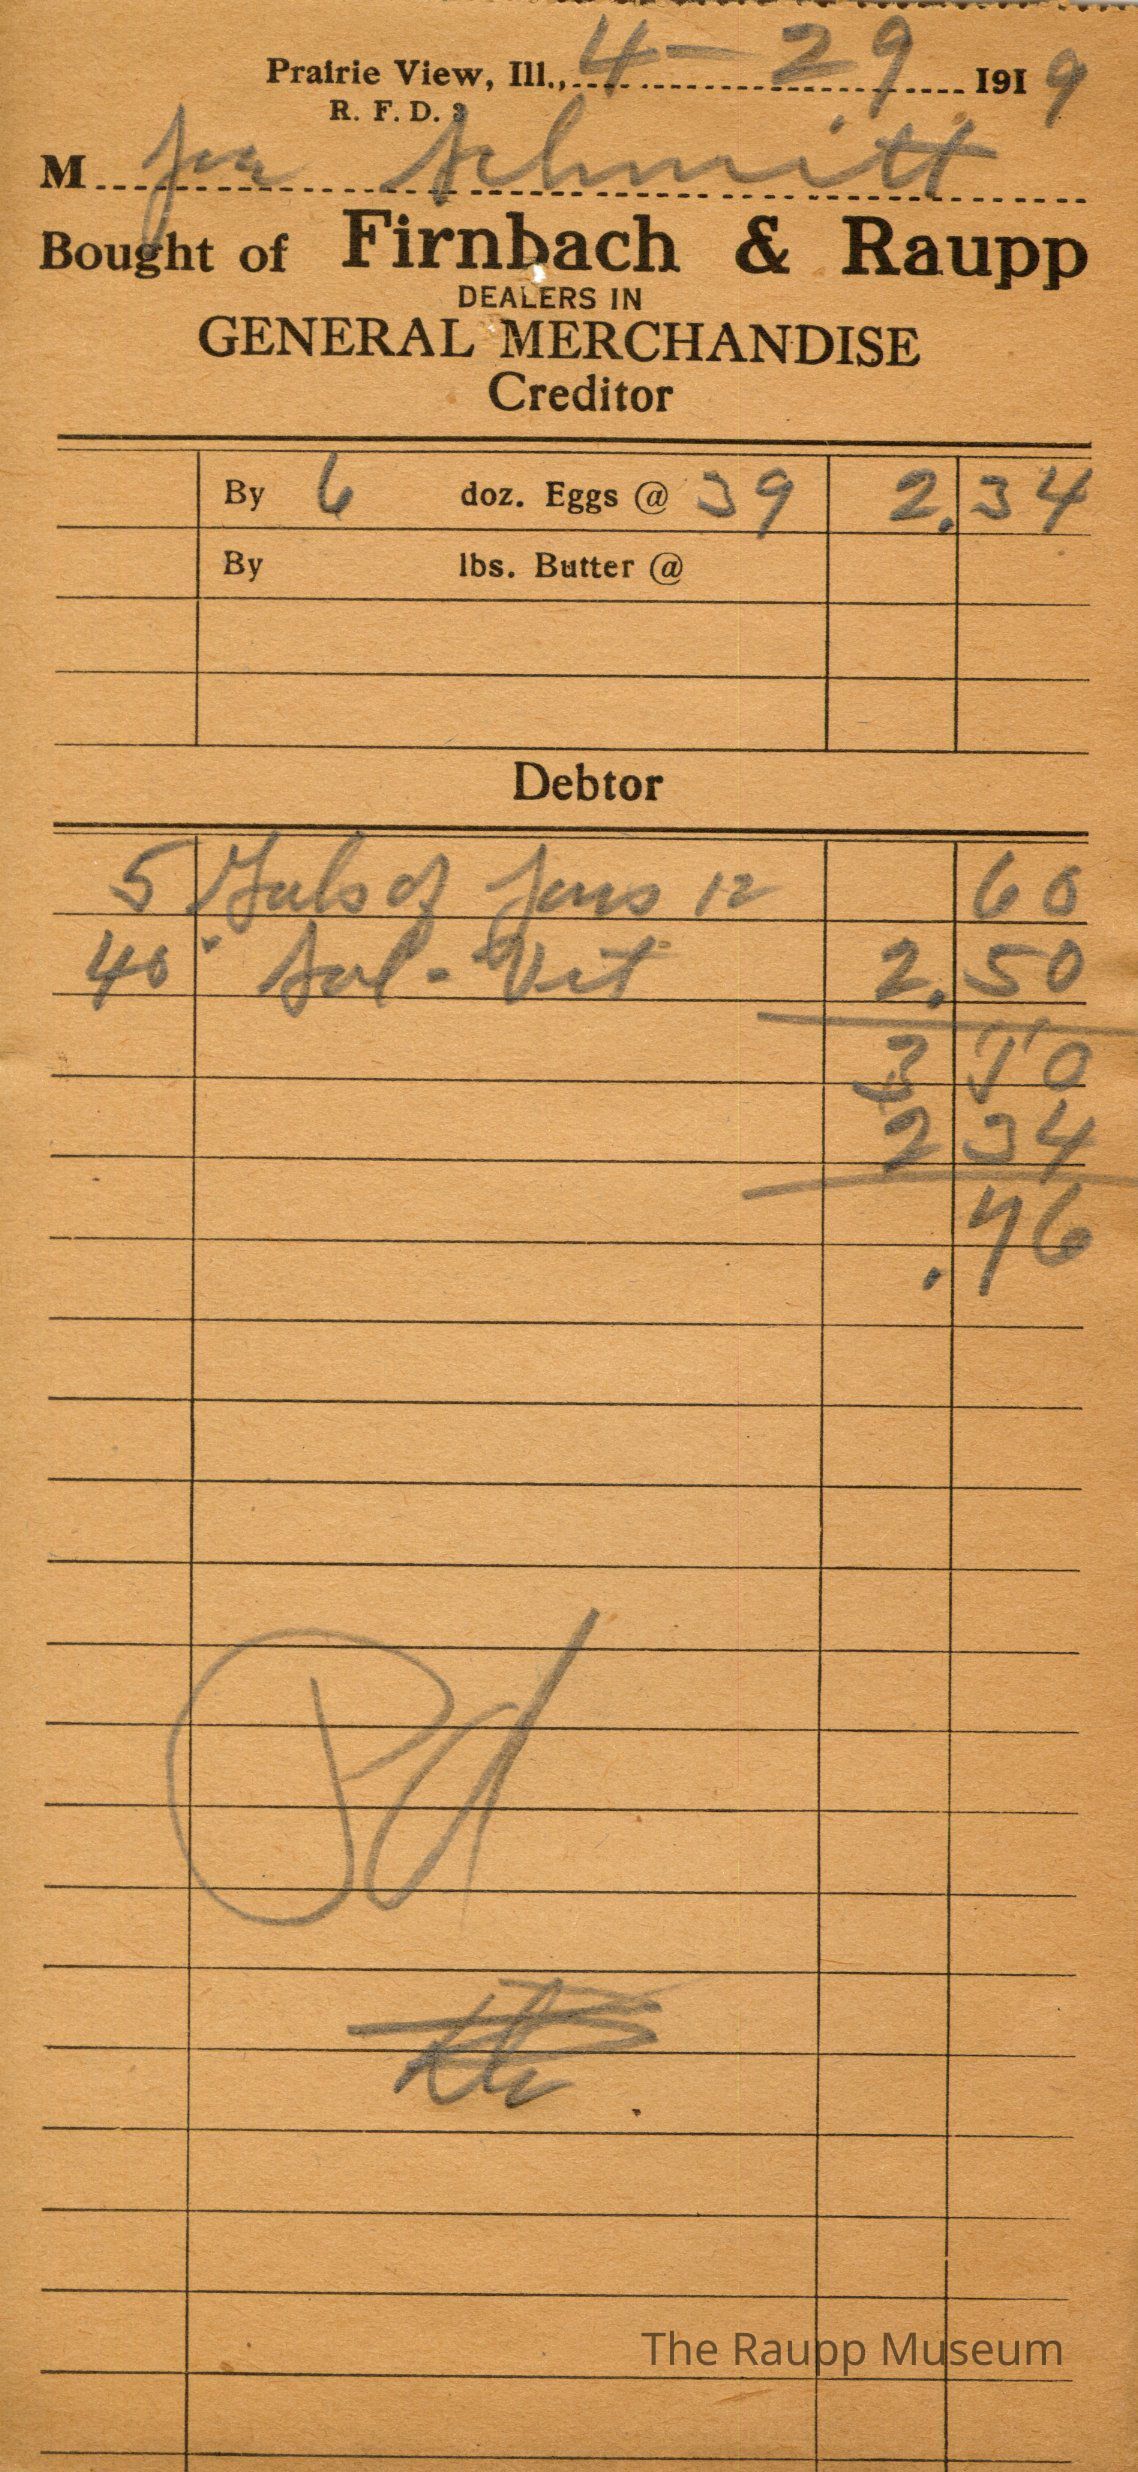 Prairie View, Ill., 4-29 1919
R. F. D. 3
M Joe Schmitt
Bought of Firnbach & Raupp
DEALERS IN
GENERAL MERCHANDISE
Creditor
By 6 doz. Eggs @ 39 2.34
By lbs. Butter @
Debtor
5 Gals of Jars 12 60
40 Sal-Vet 2.50
3 10
2 34
.76
Pd
The Raupp Museum